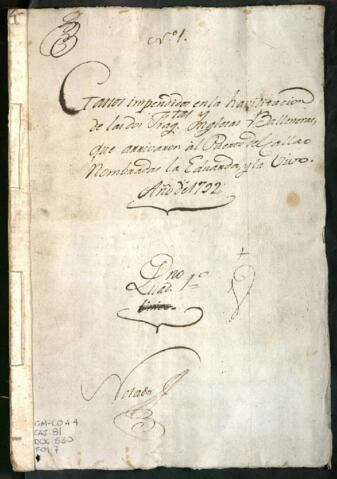 Nº 1.
Gastos impendidos en la havilitacion
de las dos Fragtas Ynglesas y Balleneras,
que arrivaron àl Puerto del Callao
Nombradas la Eduarda, y la Vivo.
Año de 1792
Qno
Quad. 1º
Notado
GM-CO 44
CAJ. 81
DOC. 560
FOL 7